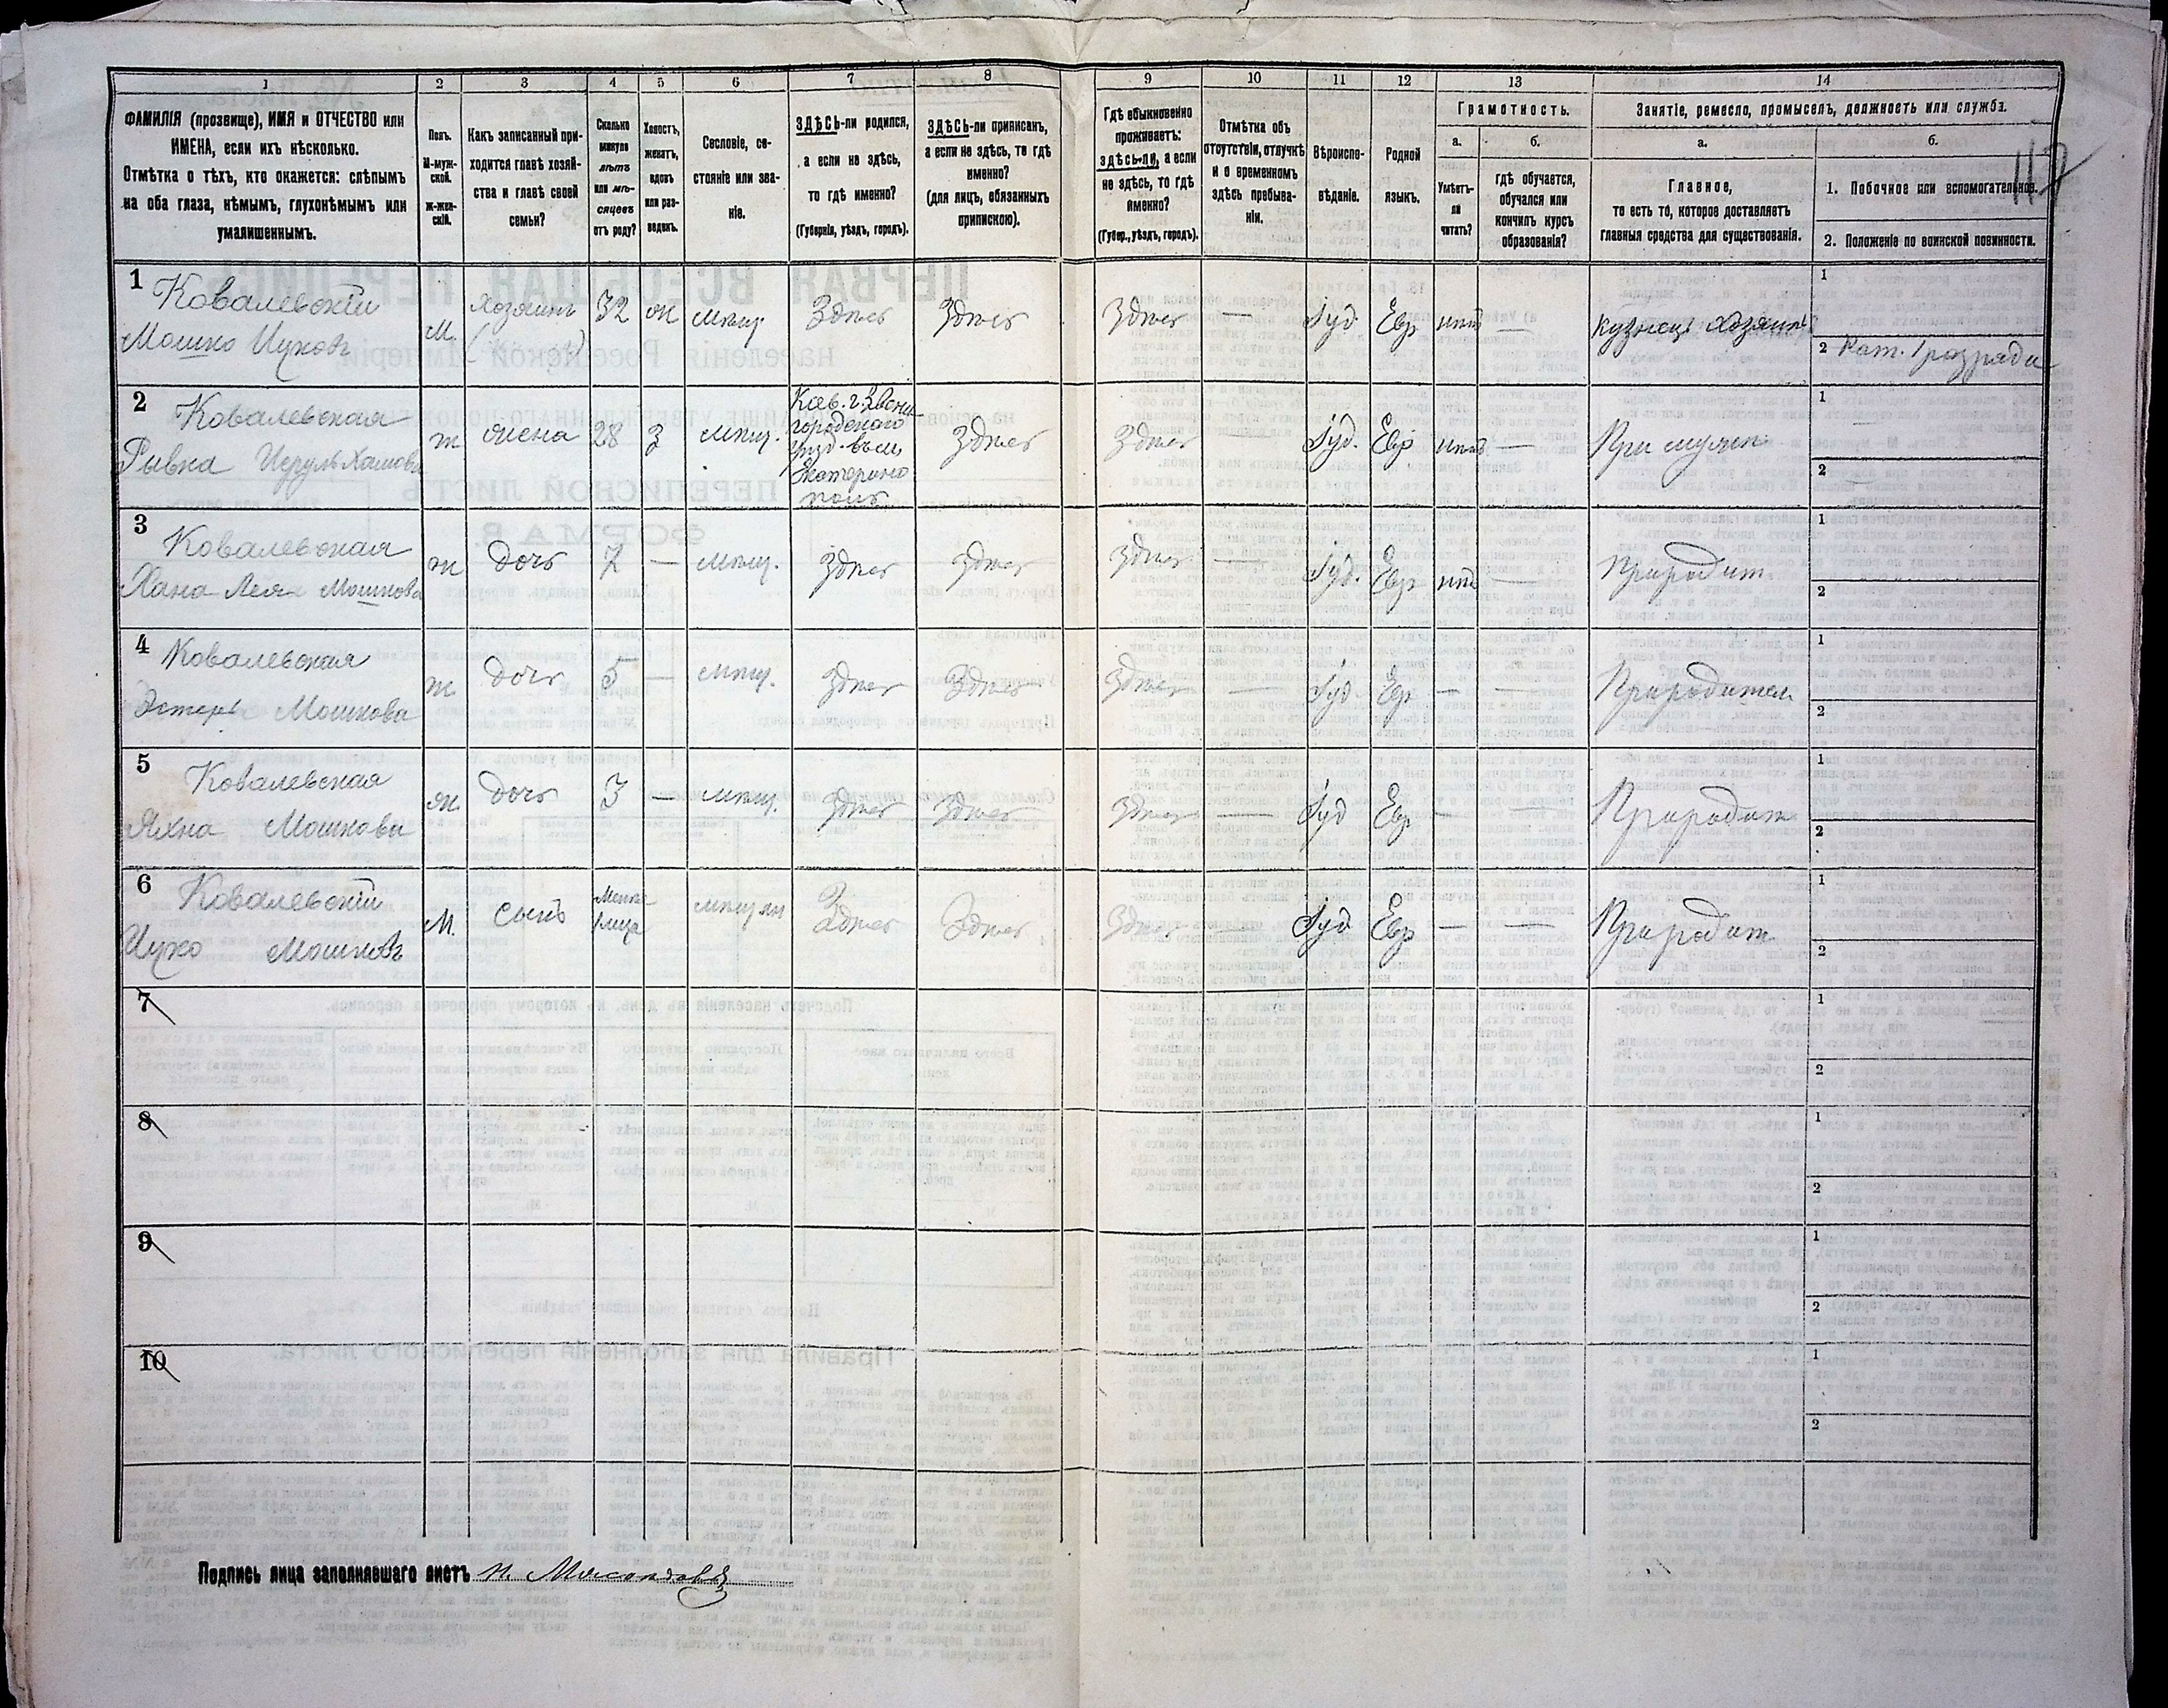 1 2 3 4 5 6 7 8 9 10 11 12 13 14
ФАМИЛІЯ (прозвище), ИМЯ и ОТЧЕСТВО или
ИМЕНА, если ихъ нѣсколько.
Отмѣтка о тѣхъ, кто окажется: слѣпымъ
на оба глаза, нѣмымъ, глухонѣмымъ или
умалишеннымъ.
Полъ.
М-муж-
ской.
Ж-жен-
скій.
Какъ записанный при-
ходится главѣ хозяй-
ства и главѣ своей
семьи?
Сколько
минуло
лѣтъ
или мѣ-
сяцевъ
отъ роду?
Холостъ,
женатъ,
вдовъ
или раз-
веденъ.
Сословіе, со-
стояніе или зва-
ніе.
ЗДѢСЬ-ли родился,
а если не здѣсь,
то гдѣ именно?
(Губернія, уѣздъ, городъ).
ЗДѢСЬ-ли приписанъ,
а если не здѣсь, то гдѣ
именно?
(для лицъ, обязанныхъ
припискою).
Гдѣ обыкновенно
проживаетъ:
здѣсь-ли, а если
не здѣсь, то гдѣ
именно?
(Губер., уѣздъ, городъ).
Отмѣтка объ
отсутствіи, отлучкѣ
и о временномъ
здѣсь пребыва-
ніи.
Вѣроиспо-
вѣданіе.
Родной
языкъ.
Грамотность.
а.
Умѣетъ-
ли
читать?
б.
гдѣ обучается,
обучался или
кончилъ курсъ
образованія?
Занятіе, ремесло, промыселъ, должность или служба.
а.
Главное,
то есть то, которое доставляетъ
главныя средства для существованія.
б.
1. Побочное или вспомогательное.
2. Положеніе по воинской повинности.
117
1 Ковалевскій
Мошко Ицковъ
М. Хозяинъ 32 ж мѣщ. Здѣсь Здѣсь Здѣсь — Іуд. Евр нѣтъ — Кузнецъ хозяинъ
1
2 Рат. 1 разряда
2 Ковалевская
Рывка
ж жена 28 з мѣщ.
Кіев. г. Звени
городскаго
уѣзд.
Екатерино
поль
Здѣсь Здѣсь — Іуд. Евр нѣтъ — При мужѣ
1
2
3 Ковалевская
Хана Лея Мошкова
ж дочь 7 — мѣщ. Здѣсь Здѣсь Здѣсь — Іуд. Евр нѣтъ — Пріродит
1
2
4 Ковалевская
Эстеръ Мошкова
ж дочь 5 — мѣщ. Здѣсь Здѣсь Здѣсь — Іуд Евр — — Пріродител
1
2
5 Ковалевская
Яхна Мошкова
ж дочь 3 — мѣщ. Здѣсь Здѣсь Здѣсь — Іуд Евр — — Пріродит
1
2
6 Ковалевскій
Ицко Мошковъ
М. сынъ
Менѣе
1 мца
мѣщан Здѣсь Здѣсь Здѣсь Іуд Евр — — Пріродит
1
2
7
1
2
8
1
2
9
1
2
10
1
2
Подпись лица заполнявшаго листъ